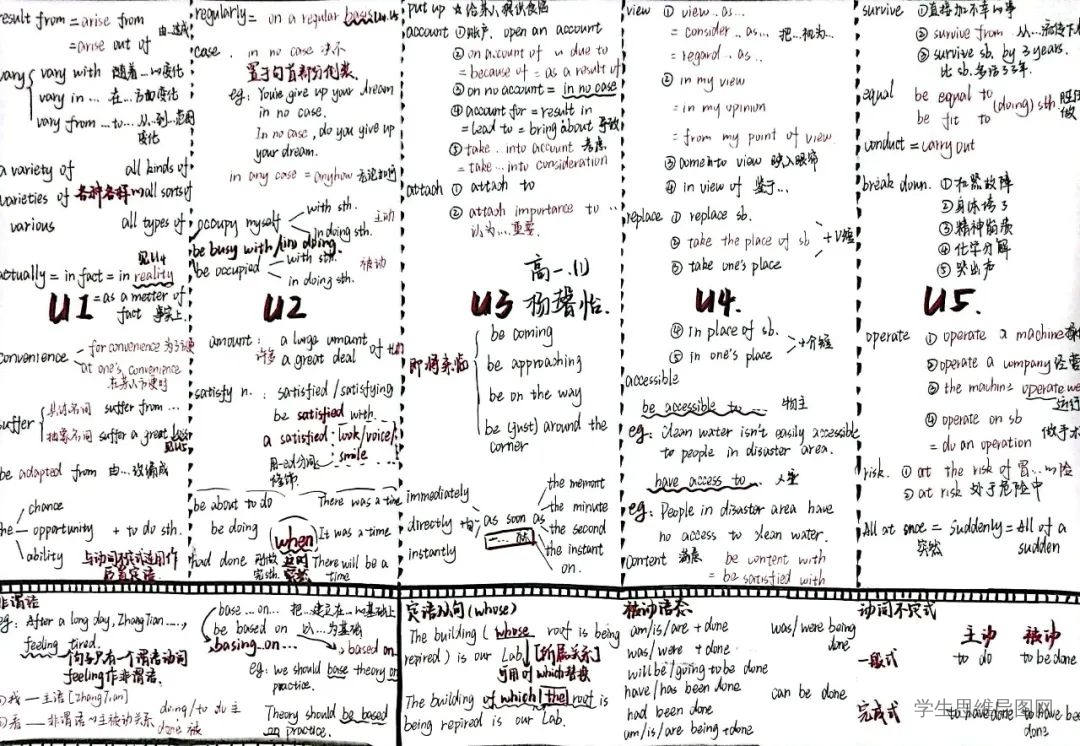 result from = arise from
= arise out of
vary
vary with 随着…的变化
vary in … 在…方面变化
vary from …to… 从…到…范围变化
a variety of all kinds of
varieties of 各种各样的 all sorts of
various all types of
见U4
actually = in fact = in reality
= as a matter of
fact 事实上.
U1
convenience
for convenience 为了方便
at one's convenience
在某人方便时
suffer
具体名词 suffer from …
抽象名词 suffer a great loss
见U5
be adapted from 由…改编成
the
chance
opportunity + to do sth.
ability
与动词不定式连用作
后置定语
regularly = on a regular basis
case
in no case 决不
置于句首部分倒装
eg: You're give up your dream
in no case.
In no case, do you give up
your dream.
in any case = anyhow 无论如何
occupy myself
with sth.
in doing sth.
主动
be busy with / (in) doing.
be occupied
with sth.
in doing sth.
被动
U2
amount:
a large umount
a great deal
of
许多
satisfy n. : satisfied / satisfying
be satisfied with
a satisfied look/voice/
smile
用-ed分词
修饰.
be about to do
be doing
had done
when
There was a time
It was a time
There will be a
time
put up
account ①账户. open an account
② on a.count of = due to
= because of = as a result of
③ on no account = in no case
④ account for = result in
= lead to = bring about 导致
⑤ take … into account 考虑
= take … into consideration
attach ① attach to
② attach importance to …
认为…重要.
高一.(1)
杨馨怡.
U3
即将来临
be coming
be approaching
be on the way
be (just) around the
corner
immediately
directly
instantly
as soon as
一…就
the memont
the minute
the second
the instant
on.
view ① view …as…
= consider …as… 把…视为…
= regard …as…
② in my view
= in my opinion
= from my point of view
③ come to view 映入眼帘
④ in view of 鉴于…
replace ① replace sb.
② take the place of sb
③ take one's place
U4.
④ in place of sb.
⑤ in one's place
accessible
be accessible to … 物主
eg: Clean water isn't easily accessible
to people in disaster area.
have access to … 人主
eg: People in disaster area have
no access to clean water.
content 满意 be content with
= be satisfied with
survive ①直接加不幸的事
② survive from 从…流传下
③ survive sb. by 3 years.
比 sb. 多活了3年.
equal be equal to
be fit to
(doing) sth.
conduct = carry out
break down. ①机器故障
②身体垮了
③精神崩溃
④化学分解
⑤哭出声
U5.
operate ① operate a machine
② operate a company 经营
③ the machine operate
运行
④ operate on sb
= do an operation
做手术
risk. ① at the risk of 冒…的险
② at risk 处于危险中
All at once = suddenly = All of a
突然 sudden
非谓语
eg: After a long day, ZhangTian ……,
feeling tired.
一句子只有一个谓语动词
feeling作非谓语.
①找—主语 [ZhangTian]
②看——非谓语的主被动关系
doing/to do 主
done 被
base …on… 把…建立在…的基础上
be based on 以…为基础
basing…on… based on
eg: we should base theory on
practice.
Theory should be based
on practice.
定语从句 (whose)
The building ( whose roof is being
repired) is our Lab.
[所属关系]
可用of which替换
The building of which the roof is
being repired is our Lab.
被动语态
am/is/are + done
was/were + done
will be / going to be done
have/has been done
had been done
am/is/are being + done
was/were being
done
can be done
动词不定式
主动 被动
一般式 to do to be done
完成式 to have done to have been
done
学生思维导图网